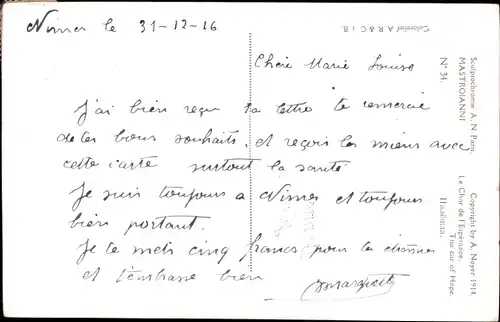 Nimes le 31-12-16
Chère Marie Louise
J'ai bien reçu ta lettre te remercie
de tes bons souhaits, et reçois les miens avec
cette carte surtout la santé
Je suis toujours a Nimes et toujours
bien portant.
Je te mets cinq francs pour les étrennes
et t'embrasse bien
Sculptochrome A. N. Paris.
MASTROIANNI
N° 34.
Copyright by A. Noyer 1914.
Le Char de l'Espérance.
The car of Hope.